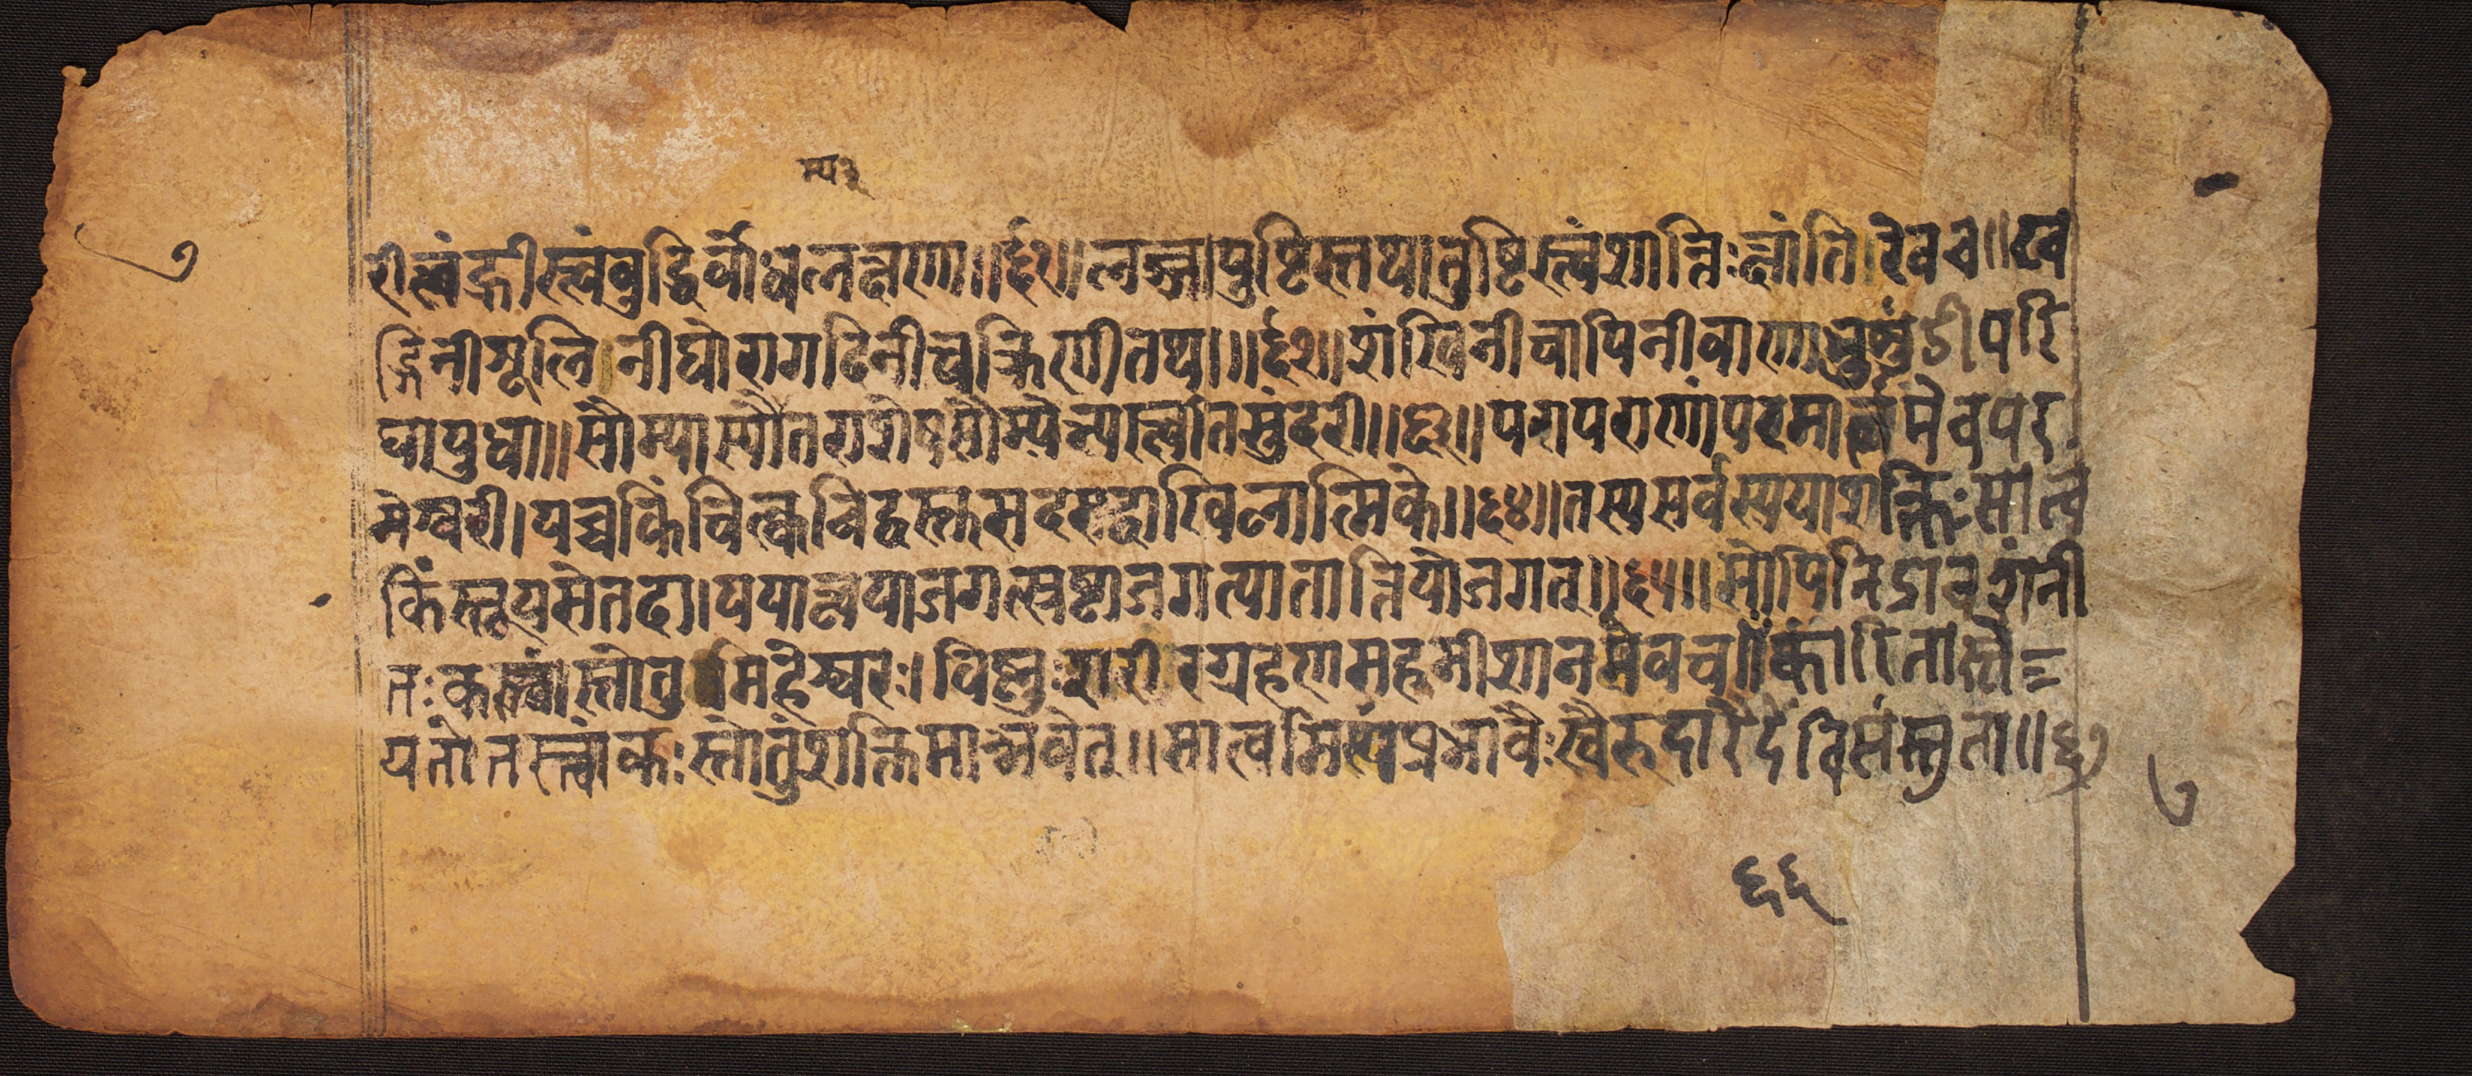 म्य३
७
री त्वं ह्रीस्त्वं बुद्धिर्बोधलक्षणा॥६१॥लज्जापुष्टिस्तथातुष्टिस्त्वंशान्तिःक्षांतिरेवच॥ख
ड्गिनीशूलिनीघोरागदिनीचक्रिणीतथा॥६२॥शंखिनीचापिनीवाणाभुशुंडीपरि
घायुधा॥सौम्यासौम्यतराशेषसौम्येभ्यस्त्वतिसुंदरी॥६३॥परापराणांपरमात्वमेवपर
मेश्वरी।यच्चकिंचित्क्वचिद्वस्तुसदसद्वाखिलात्मिके॥६४॥तस्यसर्वस्ययाशक्तिःसात्वं
किंस्तूयसेतदा।ययात्वयाजगत्स्रष्टाजगत्पातात्तियोजगत्॥६५॥सोपिनिद्रावशंनी
तःकस्त्वांस्तोतुमिहेश्वरः।विष्णुःशरीरग्रहणमहमीशानमेवच॥कारितास्ते
यतोतस्त्वांकःस्तोतुंशक्तिमान्भवेत्॥सात्वमित्थंप्रभावैःस्वैरुदारैर्देविसंस्तुता॥६७
७
६६